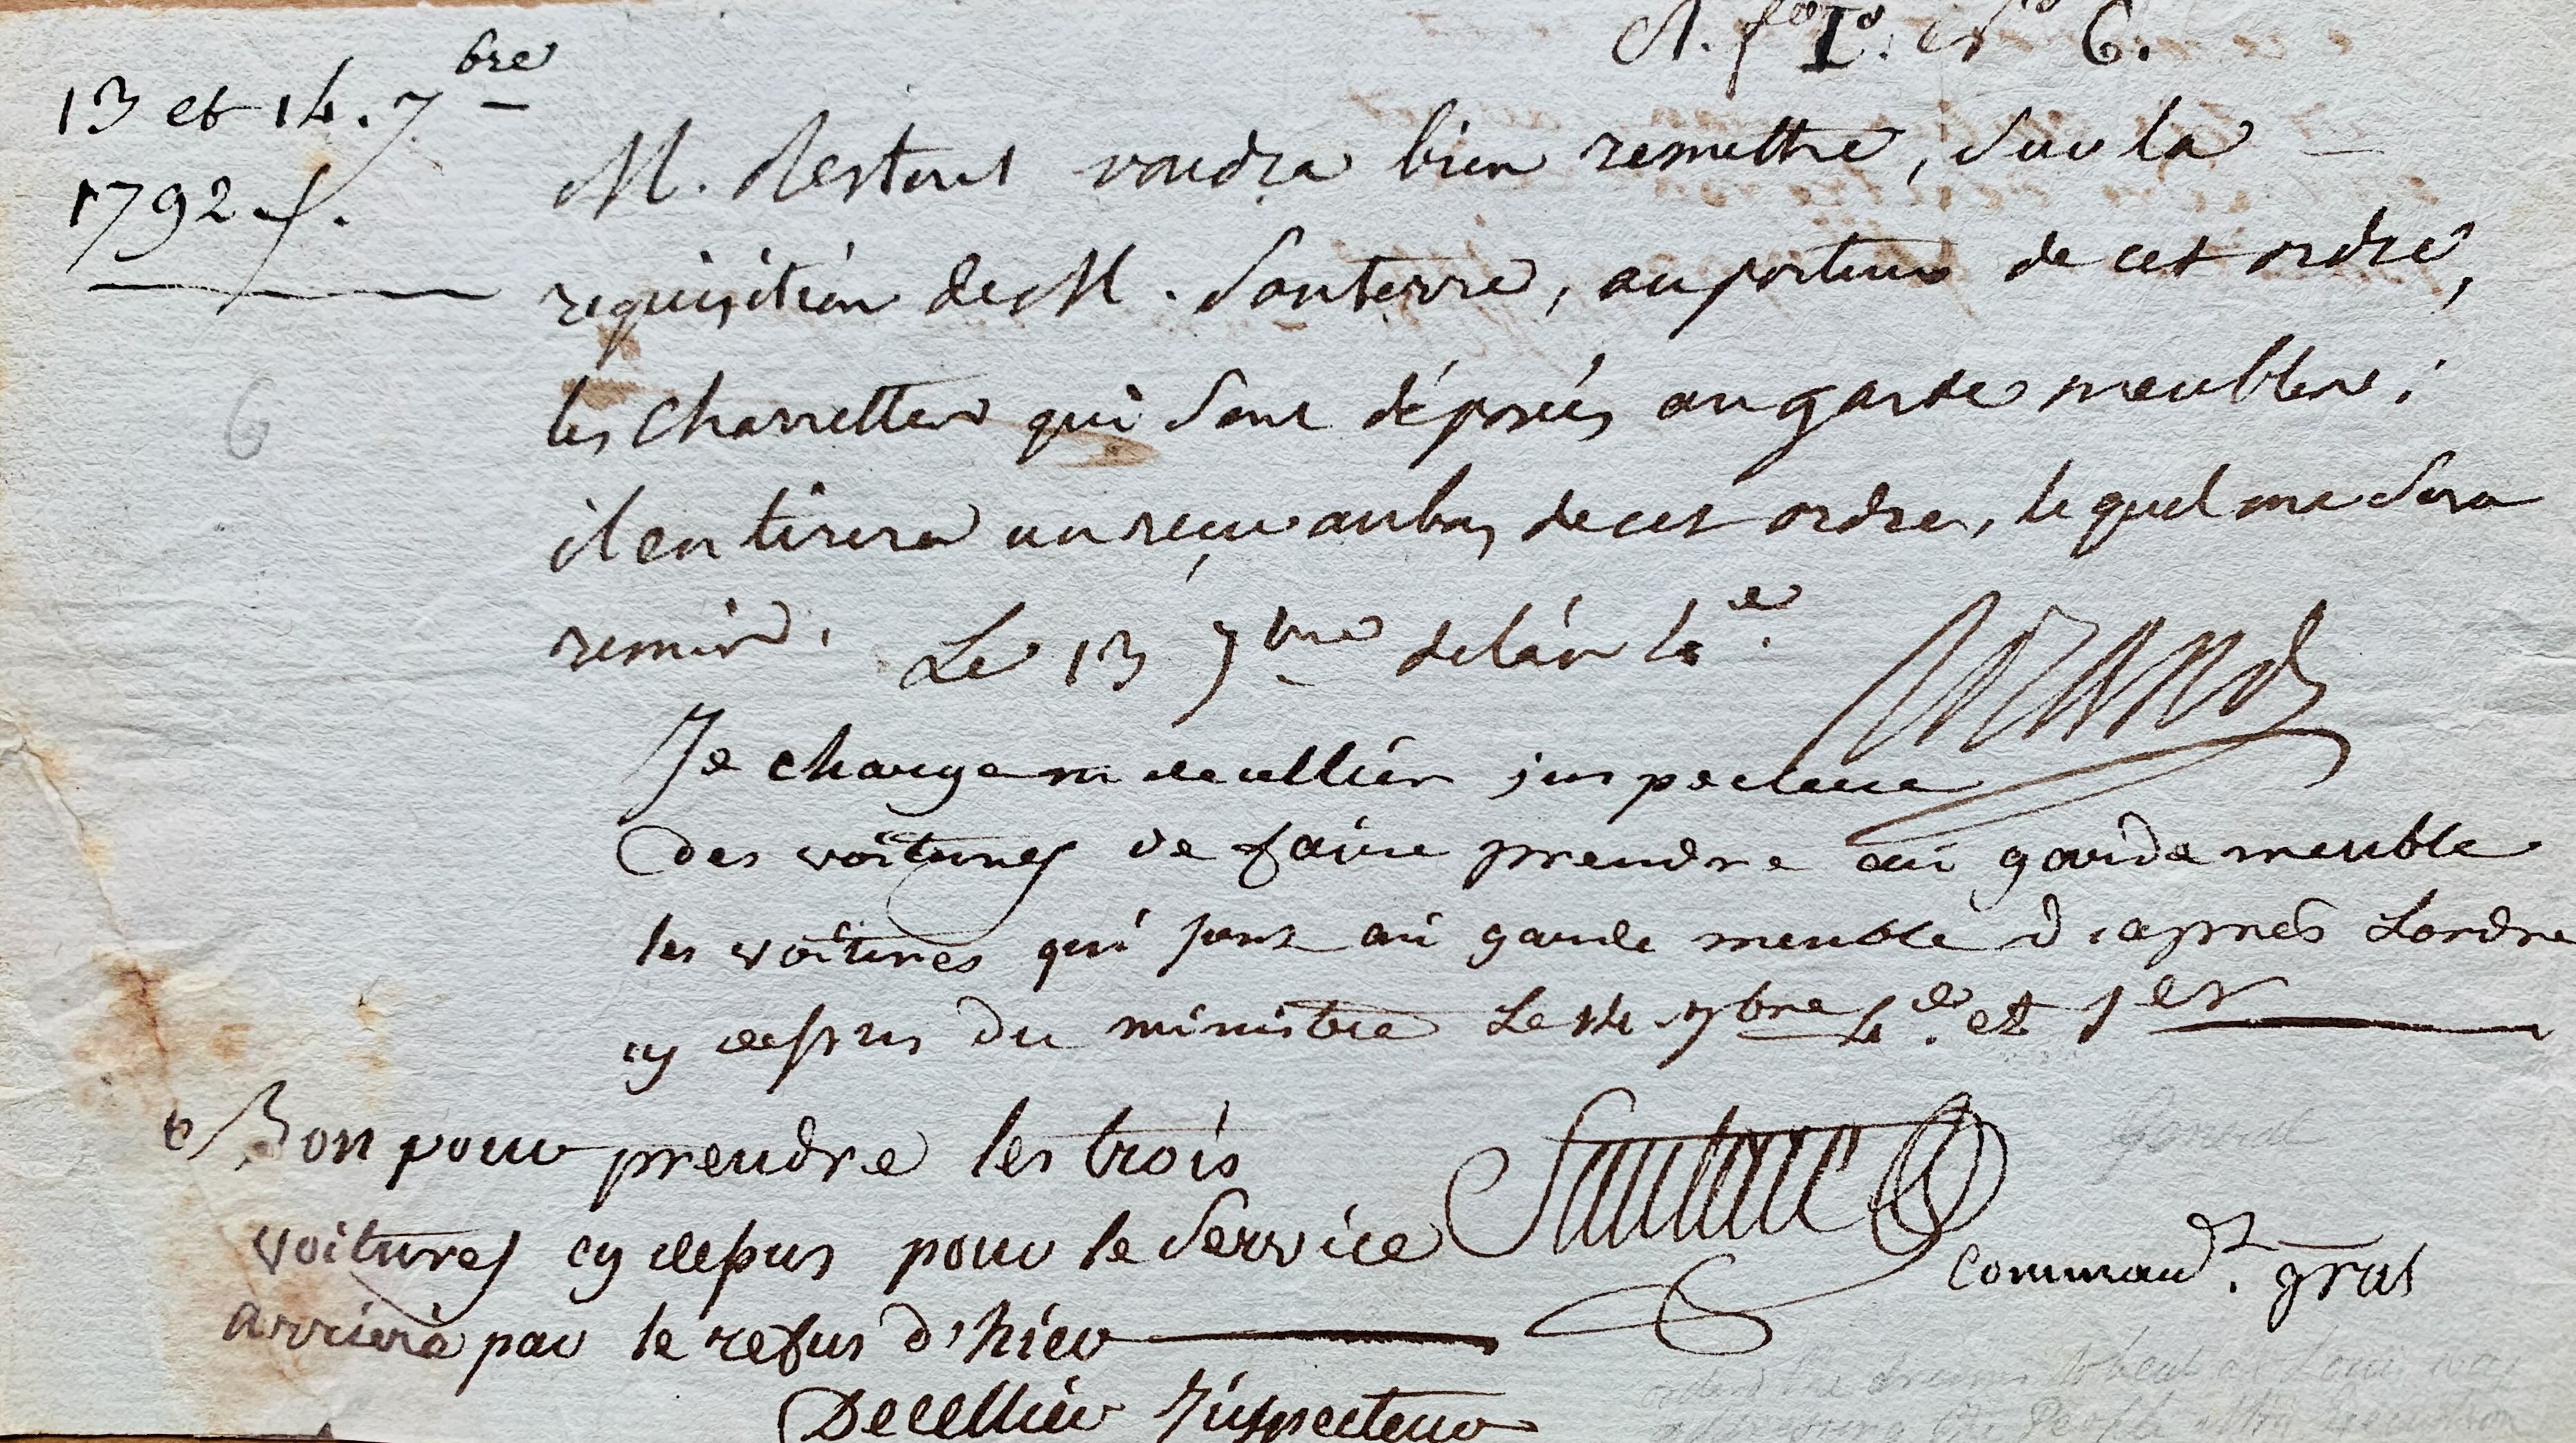 A. f° I°. N° 6.
13 et 14. 7bre
1792 f.
6
M. Restout voudra bien remettre, sur la
requisition de M. Santerre, au porteur de cet ordre,
les charrettes qui sont déposées au garde meubles;
il en tirera un reçu au bas de cet ordre, lequel me sera
remis. Le 13 7bre de l'an 4e.
Roland
Je charge m decellier inspecteur
des voitures de faire prendre au garde meuble
les voitures qui sont au garde meuble d'après Lordre
cy dessus du ministre Le 14 7bre 4e. et 1er
Bon pour prendre les trois
voitures cy depus pour le Service
arriéré par le refus d'hier
Santerre
Command.t gral
Decellier L'inspecteur
orderd the drums to beat at Louis